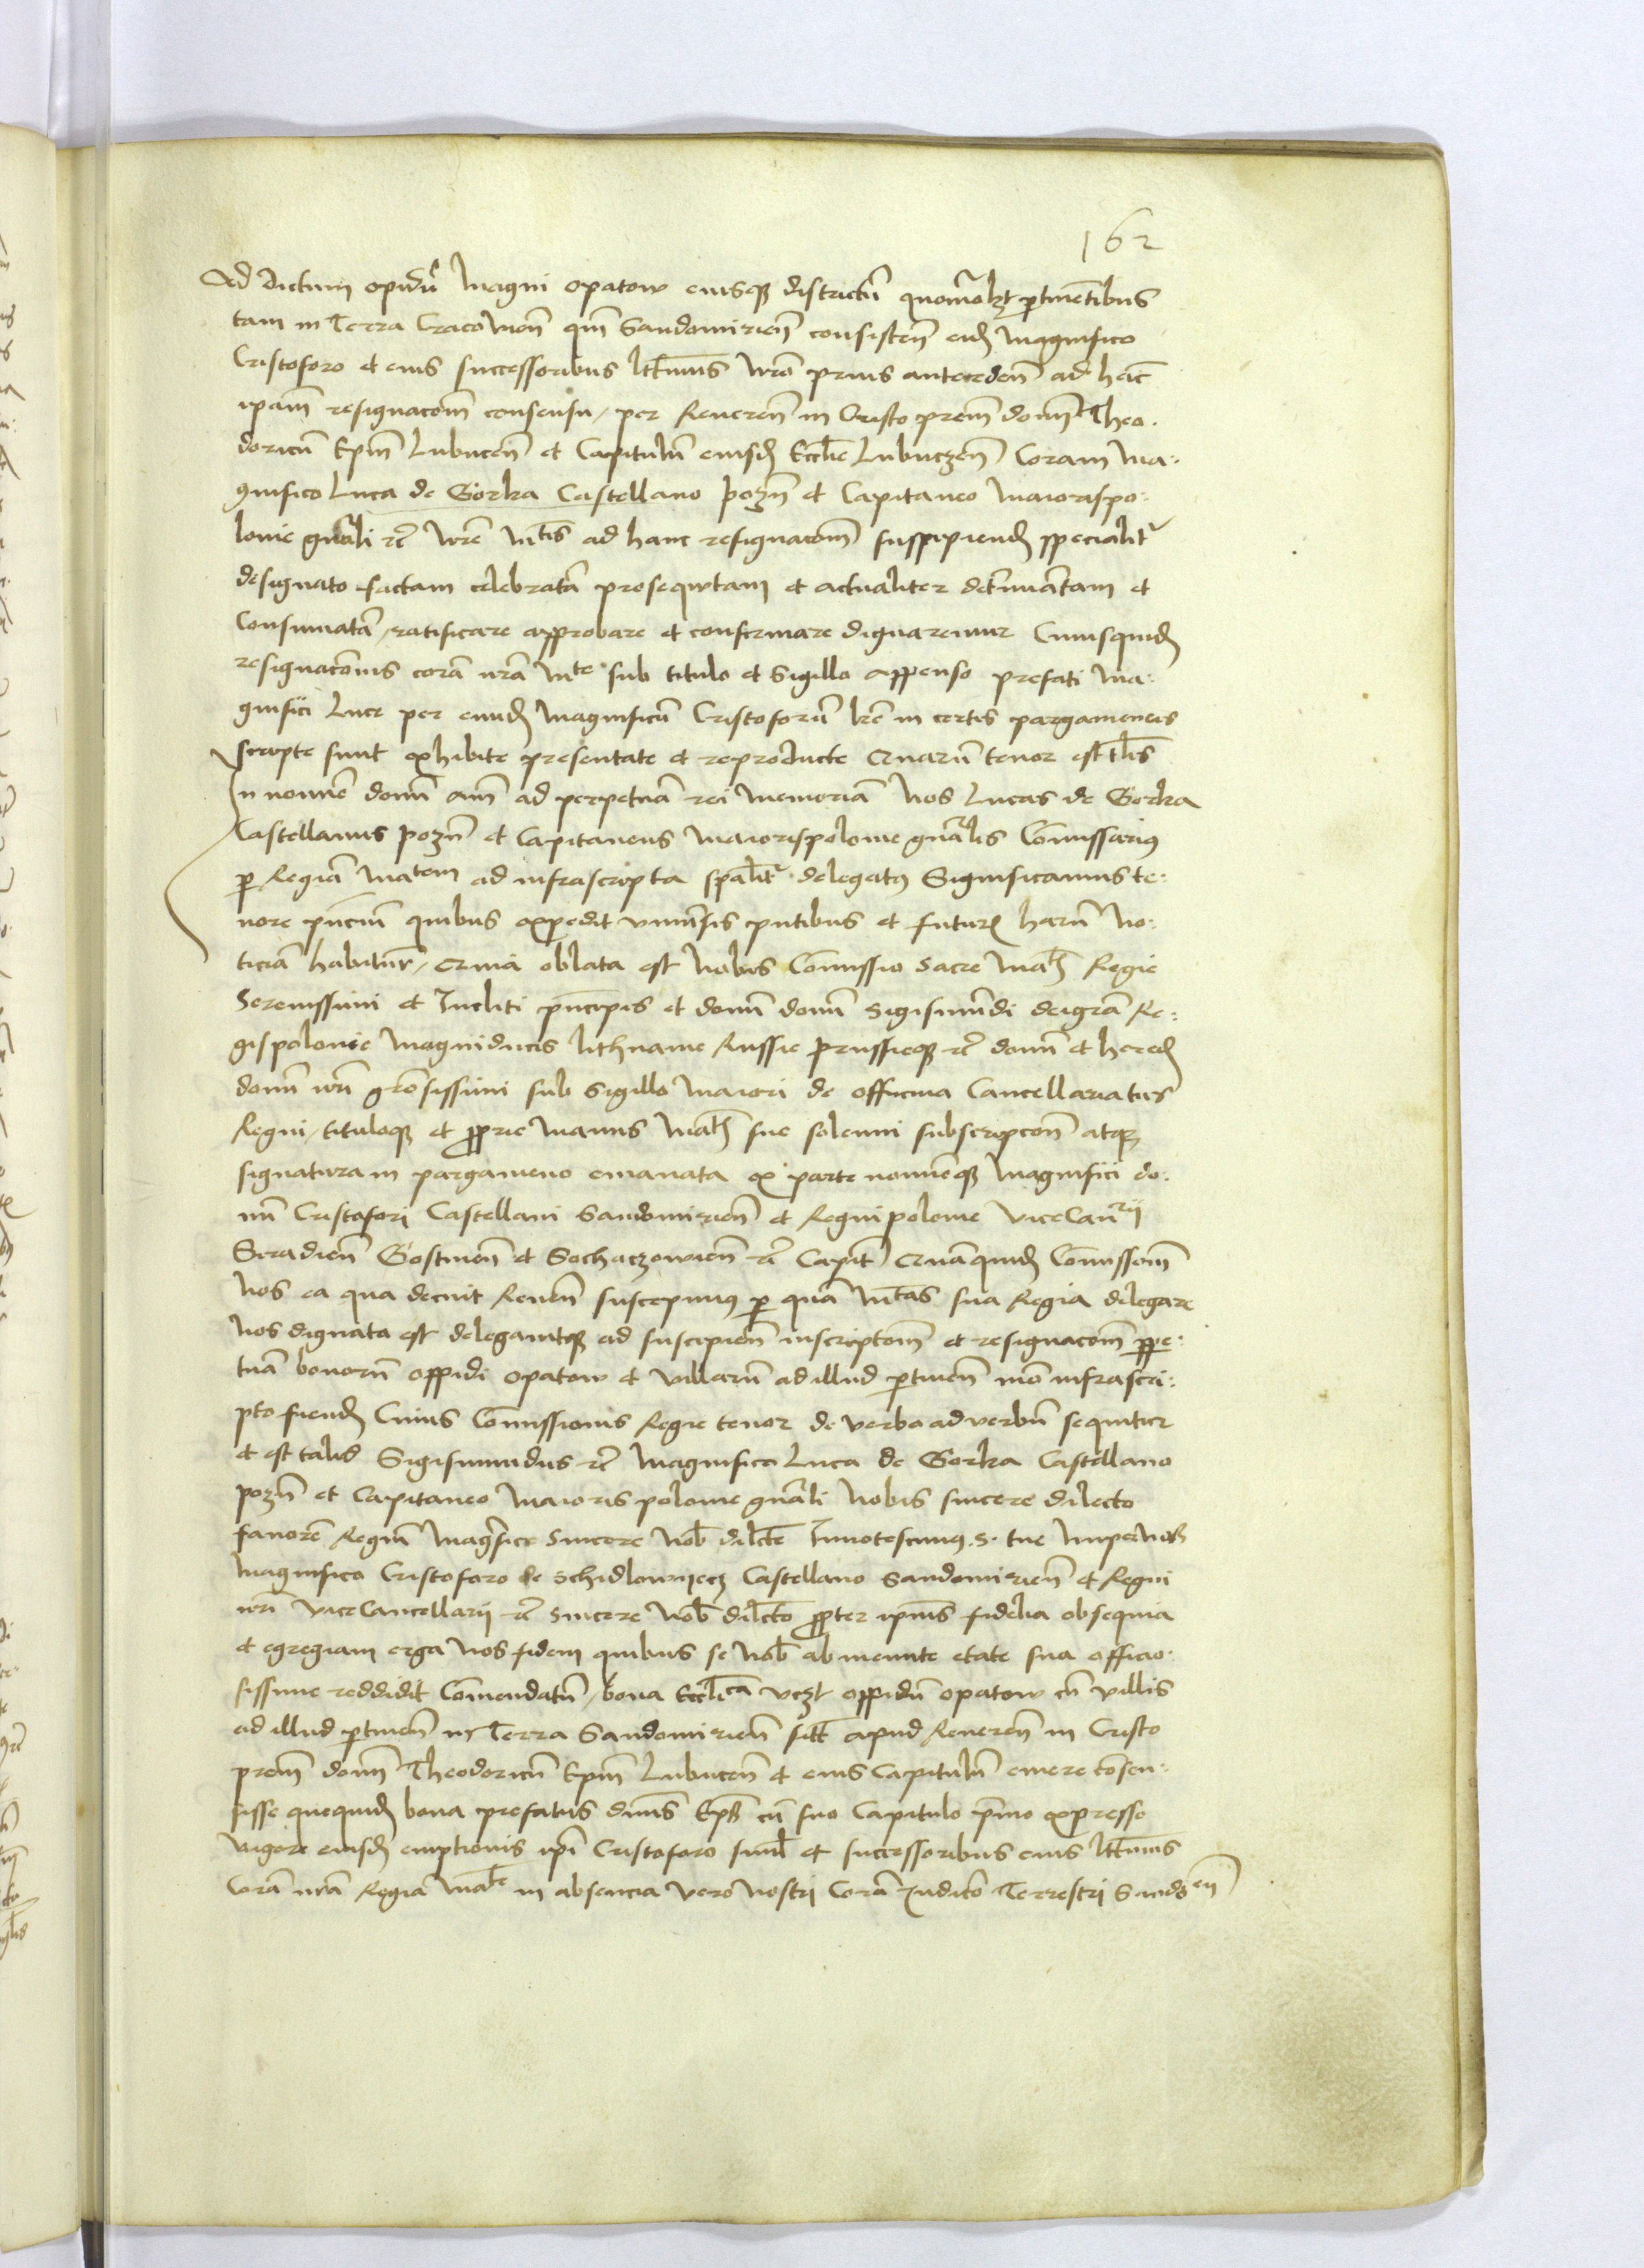 162
Ad dictum opidū magni opatow eiusqz districtū quomōlzt ptinētibus
tam in Terra Cracovień qm̄ Sandomirień consisteñ eidz magnifico
Cristoforo et eius successoribus lttīmis nr̄o prius antecedeñ ad hec̄
ipam̄ resignacōm consensu, per Reuereñ in Cristo prem̄ domī Theo.
doricū Epm̄ Lubuceñ et Capitulū eiusdz Eccl̄ie Lubuczeñ Coram Ma.
gnifico Luca de Gorka Castellano pozn̄ et Capitaneo maiorispo:
lonie gn̄ali rc̄ nr̄e Mtīs ad hanc resignacōm suspipiendz specialitr
designato factam celebratā proseqwtam et actualiter det̄mīātam et
Consumatā, ratificare approbare et confirmare dignaremur Cuiusquidz
resignacōnis corā nr̄a Mte sub titulo et Sigillo appenso prefati Ma.
gnifici Luce per eundz magnificū Cristoforū lr̄e in certis pargamenis
scripte sunt exhibite presentate et reproducte Quarū tenor est tl̄is
In nomīe domī am̄ ad perpetuā rei memoriā Nos Lucas de Gorka
Castellanus pozn̄ et Capitaneus maiorispolonie gn̄alis Comissarius
p Regiā Matem ad infrascripta spāl̄itr delegatus Significamus te:
nore pn̄cium quibus expedit vniuersis pn̄tibus et futurz harū no:
ticiā habitūr, Quia oblata est nobis Comissio Sacre Mat̄z Regie
Serenissimi et Incliti pn̄cipis et domī domī Sigismūdi deigrā Re:
gispolonie magniducis lithuanie Russie prussieqz rc̄ domī et heredz
domī nr̄i gr̄osissimi sub Sigillo maiori de officina Cancellariatus
Regni, tituloqz et pprie manus Mat̄z sue solenni subscripcoñ atqz
signatura in pargameno emanata ex parte nomīeqz magnifici do:
mī Cristofori Castellani Sandomirień et Regni polonie ViceCanrīj
Siradień Gostineñ et Sochaczowień rc̄ Capit̄ Quāquidz Comissōm
nos ea qua decuit Reueñ suscepimus p quā Mtas sua Regia dilegare
nos dignata est delegauitqz ad suscipień inscriptōm et resignacōm ppe:
tuā bonorū oppidi opatow et villarū ad illud ptineñ mō infrascri:
pto fiendz Cuius Comissionis Regie tenor de verbo ad verbū sequitur
et est talis Sigismundus rc̄ Magnifico Luca de Gorka Castellano
pozn̄ et Capitaneo maioris polonie gn̄ali nobis sincere dilecto
fauorē Regiū Magfice sincere nob̄ dilct̄e Innotescimus S. tue nuper nos
magnifico Cristoforo de Schidlowijecz Castellano Sandomirień et Regni
nr̄i viceCancellarij rc̄ sincere nob̄ dilct̄o ppter ipius fidelia obsequia
et egregiam erga nos fidem quibus se nob̄ ab ineunte etate sua officio.
sissime reddidit Comendatū, bona Eccl̄ica vczt oppidū opatow cū villis
ad illud ptineñ in Terra Sandomirień sitt̄ apud Reuereñ in Cristo
prem̄ domī Theodoricū Epm̄ Lubuceñ et eius Capitulū emere cōsen:
sisse quequidz bona prefatus dnūs Epūs cū suo Capitulo pīmo expresso
vigore eiusdz emptionis ipī Cristoforo simul et successoribus eius lttīmis
Corā nr̄a Regia Mate in absencia vero nostri Corā Judicio Terrestri Sandoeñ